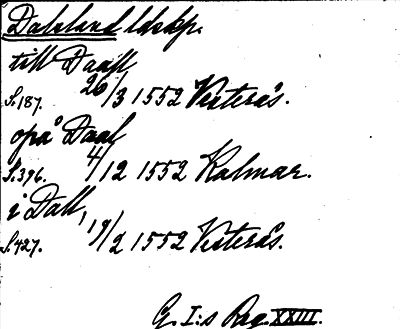 Dalsland ldskp.
till Daall
S. 187. 26/3 1552 Vesterås.
opå Daal
S. 396. 4/12 1552 Kalmar.
i Dall,
S. 427. 19/2 1552 Vesterås.
G. I:s Reg. XXIII.